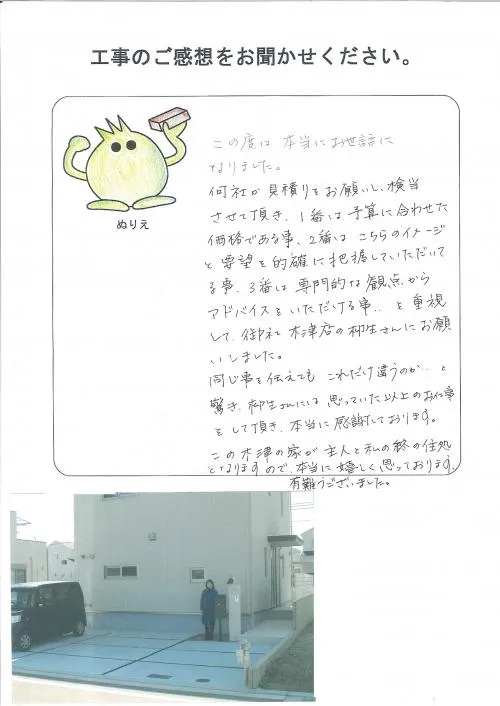 工事のご感想をお聞かせください。
ぬりえ
この度は 本当にお世話に
なりました。
何社か見積りをお願いし、検当
させて頂き、1番は予算に合わせた
価格である事、2番は こちらのイメージ
と要望を的確に把握していただいて
る事、3番は 専門的な観点から
アドバイスをいただける事.. を重視
して、御社 木津店の柳生さんにお願
いしました。
同じ事を伝えても これだけ違うのか.. と
驚き、柳生さんには 思っていた以上のお仕事
をして頂き、本当に感謝しております。
この木津の家が 主人と私の終の住処
となりますので、本当に嬉しく思っております。
有難うございました。